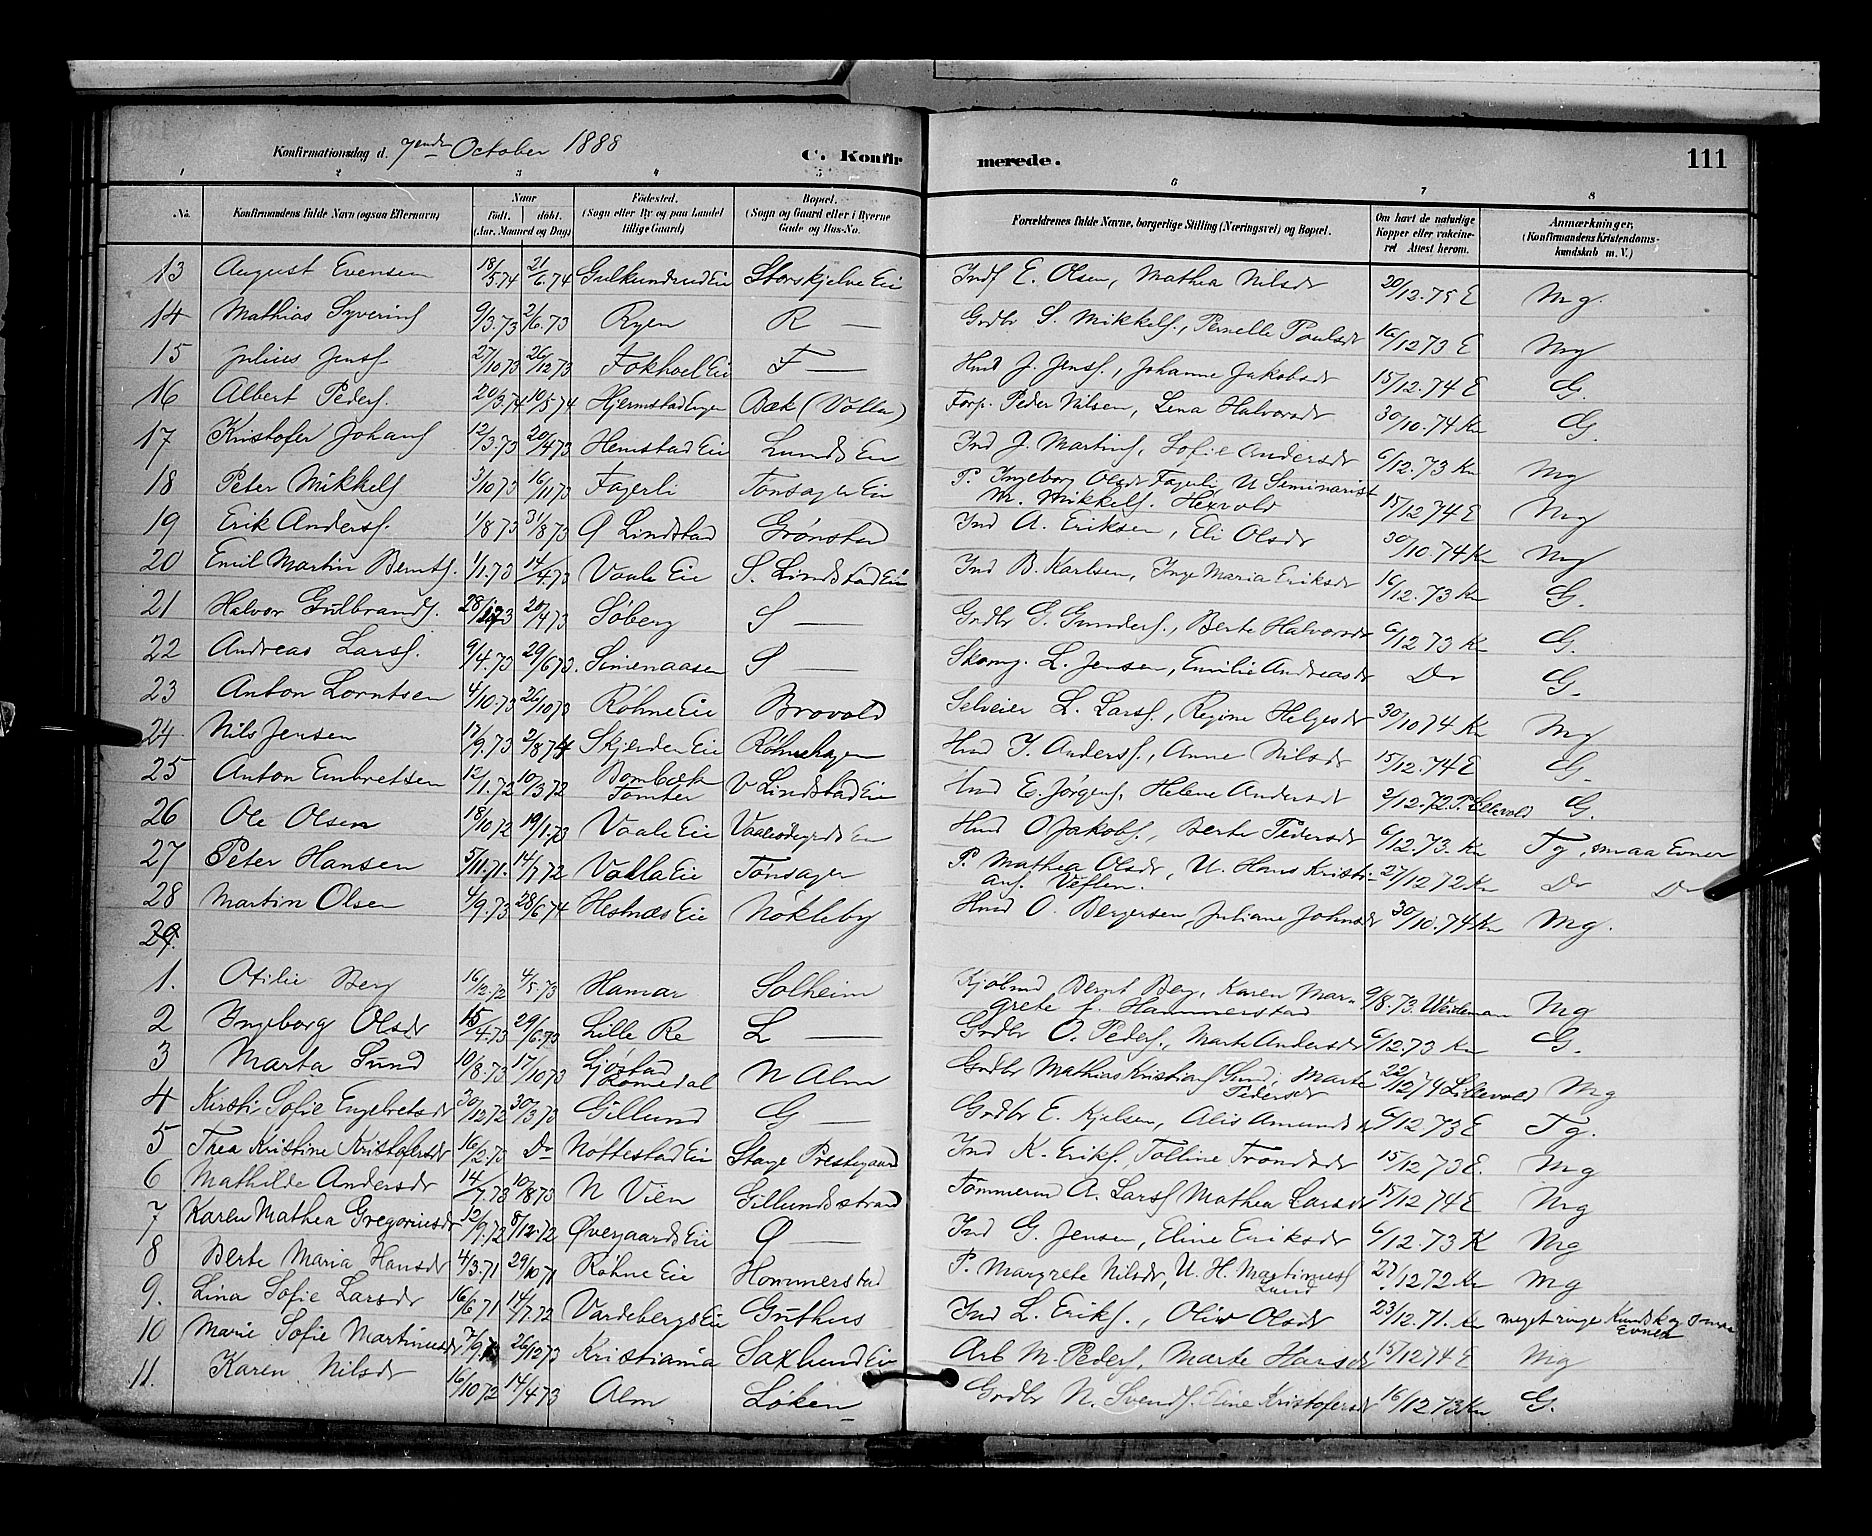 Konfirmationsdag d. 7ende October 1888 C. Konfir merede. 111
1 2 3 4 5 6 7 8
No. Konfirmandens fulde Navn (ogsaa Efternavn) Naar födt. döbt. (Aar, Maaned og Dag) Födested. (Sogn eller By og paa Landet tillige Gaard) Bopæl. (Sogn og Gaard eller i Byerne Gade og Hus-No. Forældrenes fulde Navne, borgerlige Stilling (Næringsvei) og Bopæl. Om havt de naturlige Kopper eller vakcineret Attest herom. Anmærkninger, (Konfirmandens Kristendomskundskab m. V.)
13 August Evensen 18/5.74 21/6.74 Gulkundrud Eie Storskjelve Eie Indf E. Olsen, Mathea Nilsdr 20/12.75 E Mg.
14 Mathias Syverins 9/3.73 2/6.73 Ryen R — Grdbr S. Mikkels., Pernelle Paulsdr 16/12 73 E Mg
15 Julius Jensf. 27/10.73 26/12 73 Fokhoel Eie F — Hmd J. Jensf., Johanne Jakobsdr 15/12.74 E G.
16 Albert Pedersf. 20/3.74 10/5 74 Hjermstad Enger Bæk (Volla) Forp. Peder Nilsen, Lena Halvorsdr 30/10.74 Kn G.
17 Kristofer Johansf 12/3.73 20/4 73 Hemstad Eie Lunds Eie Ind J. Martins, Sofie Andersdr 6/12.73 Kn Mg
18 Peter Mikkelsf 3/10 73 16/11 73 Fagerli Tonsager Eie P. Ingeborg Olsdr Fagerli U Seminarist M. Mikkelsf. Hexvold 15/12 74 E Mg
19 Erik Andersf. 1/8 73 31/8 73 Ø Lindstad Grønstad Ind A. Eriksen, Eli Olsdr 30/10.74 Kn Mg
20 Emil Martin Berntsf. 1/1.73 14/4.73 Vaale Eie S. Lindstad Eie Ind B. Karlsen, Inge Maria Eriksdr 16/12.73 Kn G.
21 Halvor Gulbrandsf. 28/ 73 20/4 73 Söberg S — Grdbr G. Gundersf., Berte Halvorsdr 6/12 73 Kn G.
22 Andreas Larsf. 9/4.73 29/6 73. Simenaasen S — Skomg. L. Jensen, Emilie Andreasdr Do G.
23 Anton Lorntsen 4/10.73 26/10 73 Röhne Eie Brovold Selveier L. Larsf., Regine Helgesdr 30/10 74 Kn Mg
24 Nils Jensen 17/9.73 2/8 74 Skjerden Eie Röhnehagen Hmd J. Andersf., Anne Nilsdr 15/12.74 E G.
25 Anton Embretsen 12/1.72 10/3 72 Bombæk Tomter V Lindstad Eie Hmd E. Jörgens, Helene Andersdr 2/12.72. P. Lillevold G.
26 Ole Olsen 18/10 72 19/1.73 Vaale Eie Vaaleödegrds Eie Hmd O Jakobsf., Berte Pedersdr 6/12.73. Kn Tg, smaa Evner
27 Peter Hansen 5/11.71. 14/7 72 Valla Eie Tonsager P. Mathea Olsdr, U. Hans Kristiansf Veflen. 27/12 72 Kn Do Do
28 Martin Olsen 4/9.73 28/6 74 Hestnæs Eie Nökleby Hmd O. Bergersen, Juliane Johnsdr 30/10.74 Kn Mg.
29.
1. Otilie Berg 16/12.72 4/5.73 Hamar Solheim Kjölmd Bernt Berg, Karen Margrete f. Hammerstad 9/8.73. Weideman Mg
2 Ingeborg Olsdr 15/4.73 29/6.73 Lille Re L — Grdbr O. Pedersf., Marte Andersdr 6/12.73 Kn G.
3 Marta Sund 10/8.73 17/10 73 Ljöstad Romedal N Alm Grdbr Mathias Kristiansf Sund, Marte Pedersdr 22/12 74 Lillevold Mg
4 Kirsti Sofie Engebretsdr 30/12 72 30/3 73 Gillund G — Grdbr E. Kjelsen, Alis Amundsdr 6/12 73 E Tg.
5 Thea Kristine Kristofersdr 16/2.73 Do Nöttestad Eie Stange Prestegaard Ind K. Eriksf., Tolline Trondsdr 15/12 73 E. Mg
6 Mathilde Andersdr 14/7.73 10/8 73 N Vien Gillundstrand Tömmermd A. Larsf Mathea Larsdr 15/12 74 E Mg
7 Karen Mathea Gregoriusdr 12/9.72 8/12.72 Øvergaards Eie Ø — Ind G. Jensen, Eline Eriksdr 6/12.73 K Mg
8 Berte Maria Hansdr 4/3.71 29/10 71 Röhne Eie Hommerstad P. Margrete Nilsdr, U. H. Martinusf Lund 27/12 72 Kn Mg
9. Lina Sofie Larsdr 16/6 71 14/7.72 Vardebergs Eie Guthus Ind L. Eriksf., Oline Olsdr 23/12.71. Kn meget ringe Kundsk og smaa Evner
10 Marie Sofie Martinusdr 7/9.73 26/12 73 Kristiania Saxlund Eie Arb M. Pedersf, Marte Hansdr 15/12 74 E Mg
11. Karen Nilsdr 16/10 72 14/4.73 Alm Löken Grdbr N. Svendsf. Eline Kristofersdr 16/12 73 Kn. G.